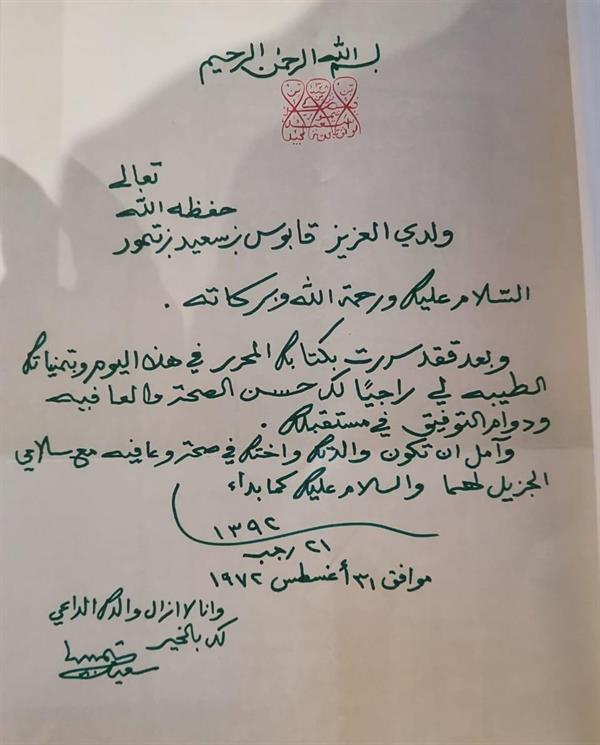 بسم الله الرحمن الرحيم
تعالى
حفظه الله
ولدي العزيز قابوس بن سعيد بن تيمور
السلام عليك ورحمة الله وبركاته .
وبعد فقد سررت بكتابك المحرر في هذا اليوم وبتمنياتك
الطيبه لي راجيًا لك حسن الصحة والعافيه
ودوام التوفيق في مستقبلك .
وآمل ان تكون والدتك واختك في صحة وعافيه مع سلامي
الجزيل لهما والسلام عليك كما بدأء
١٣٩٢
٢١ رجب
موافق ٣١ أغسطس ١٩٧٢
وانا لا ازال والدك الداعي
لك بالخير
سعيد بن تيمور